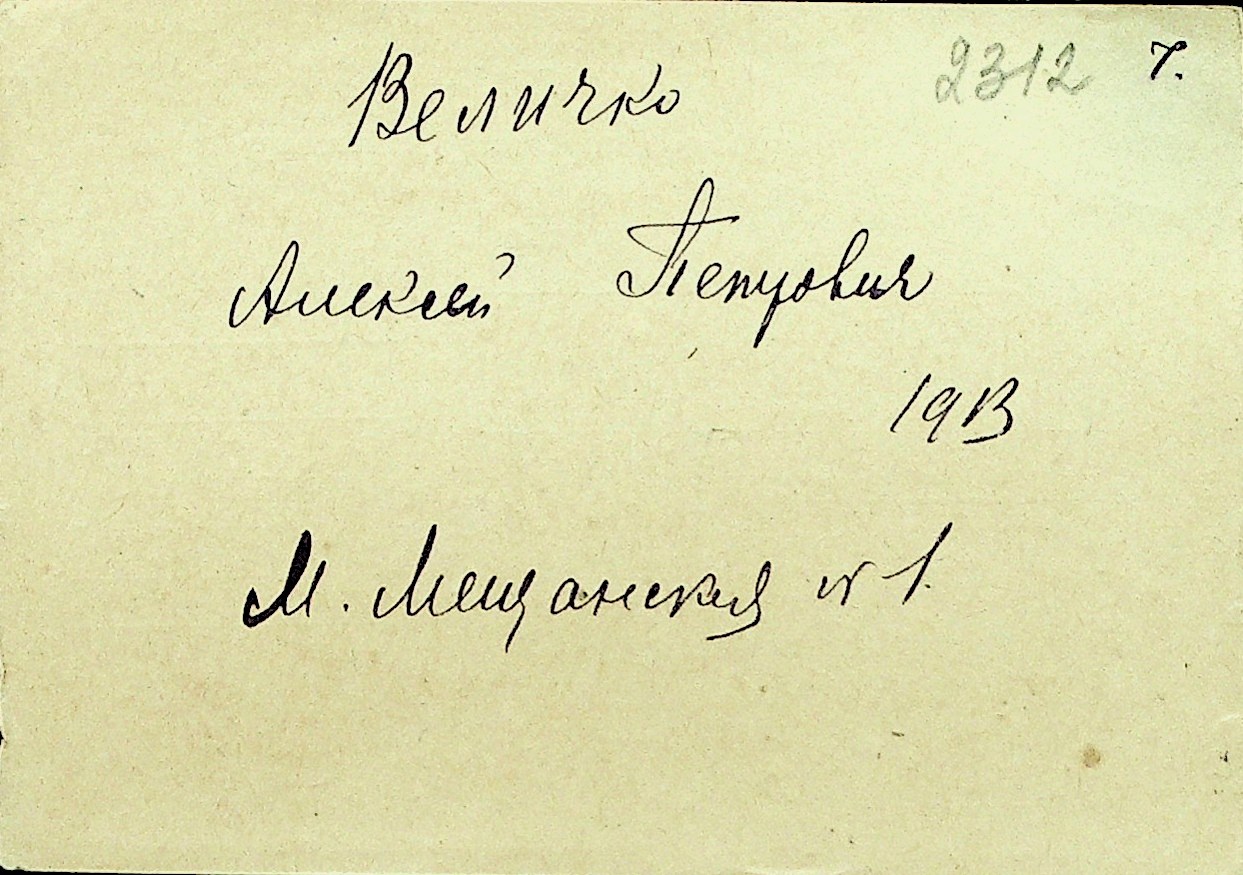 2312 7.
Величко
Алексей Петрович
1913
М. Мещанская № 1.